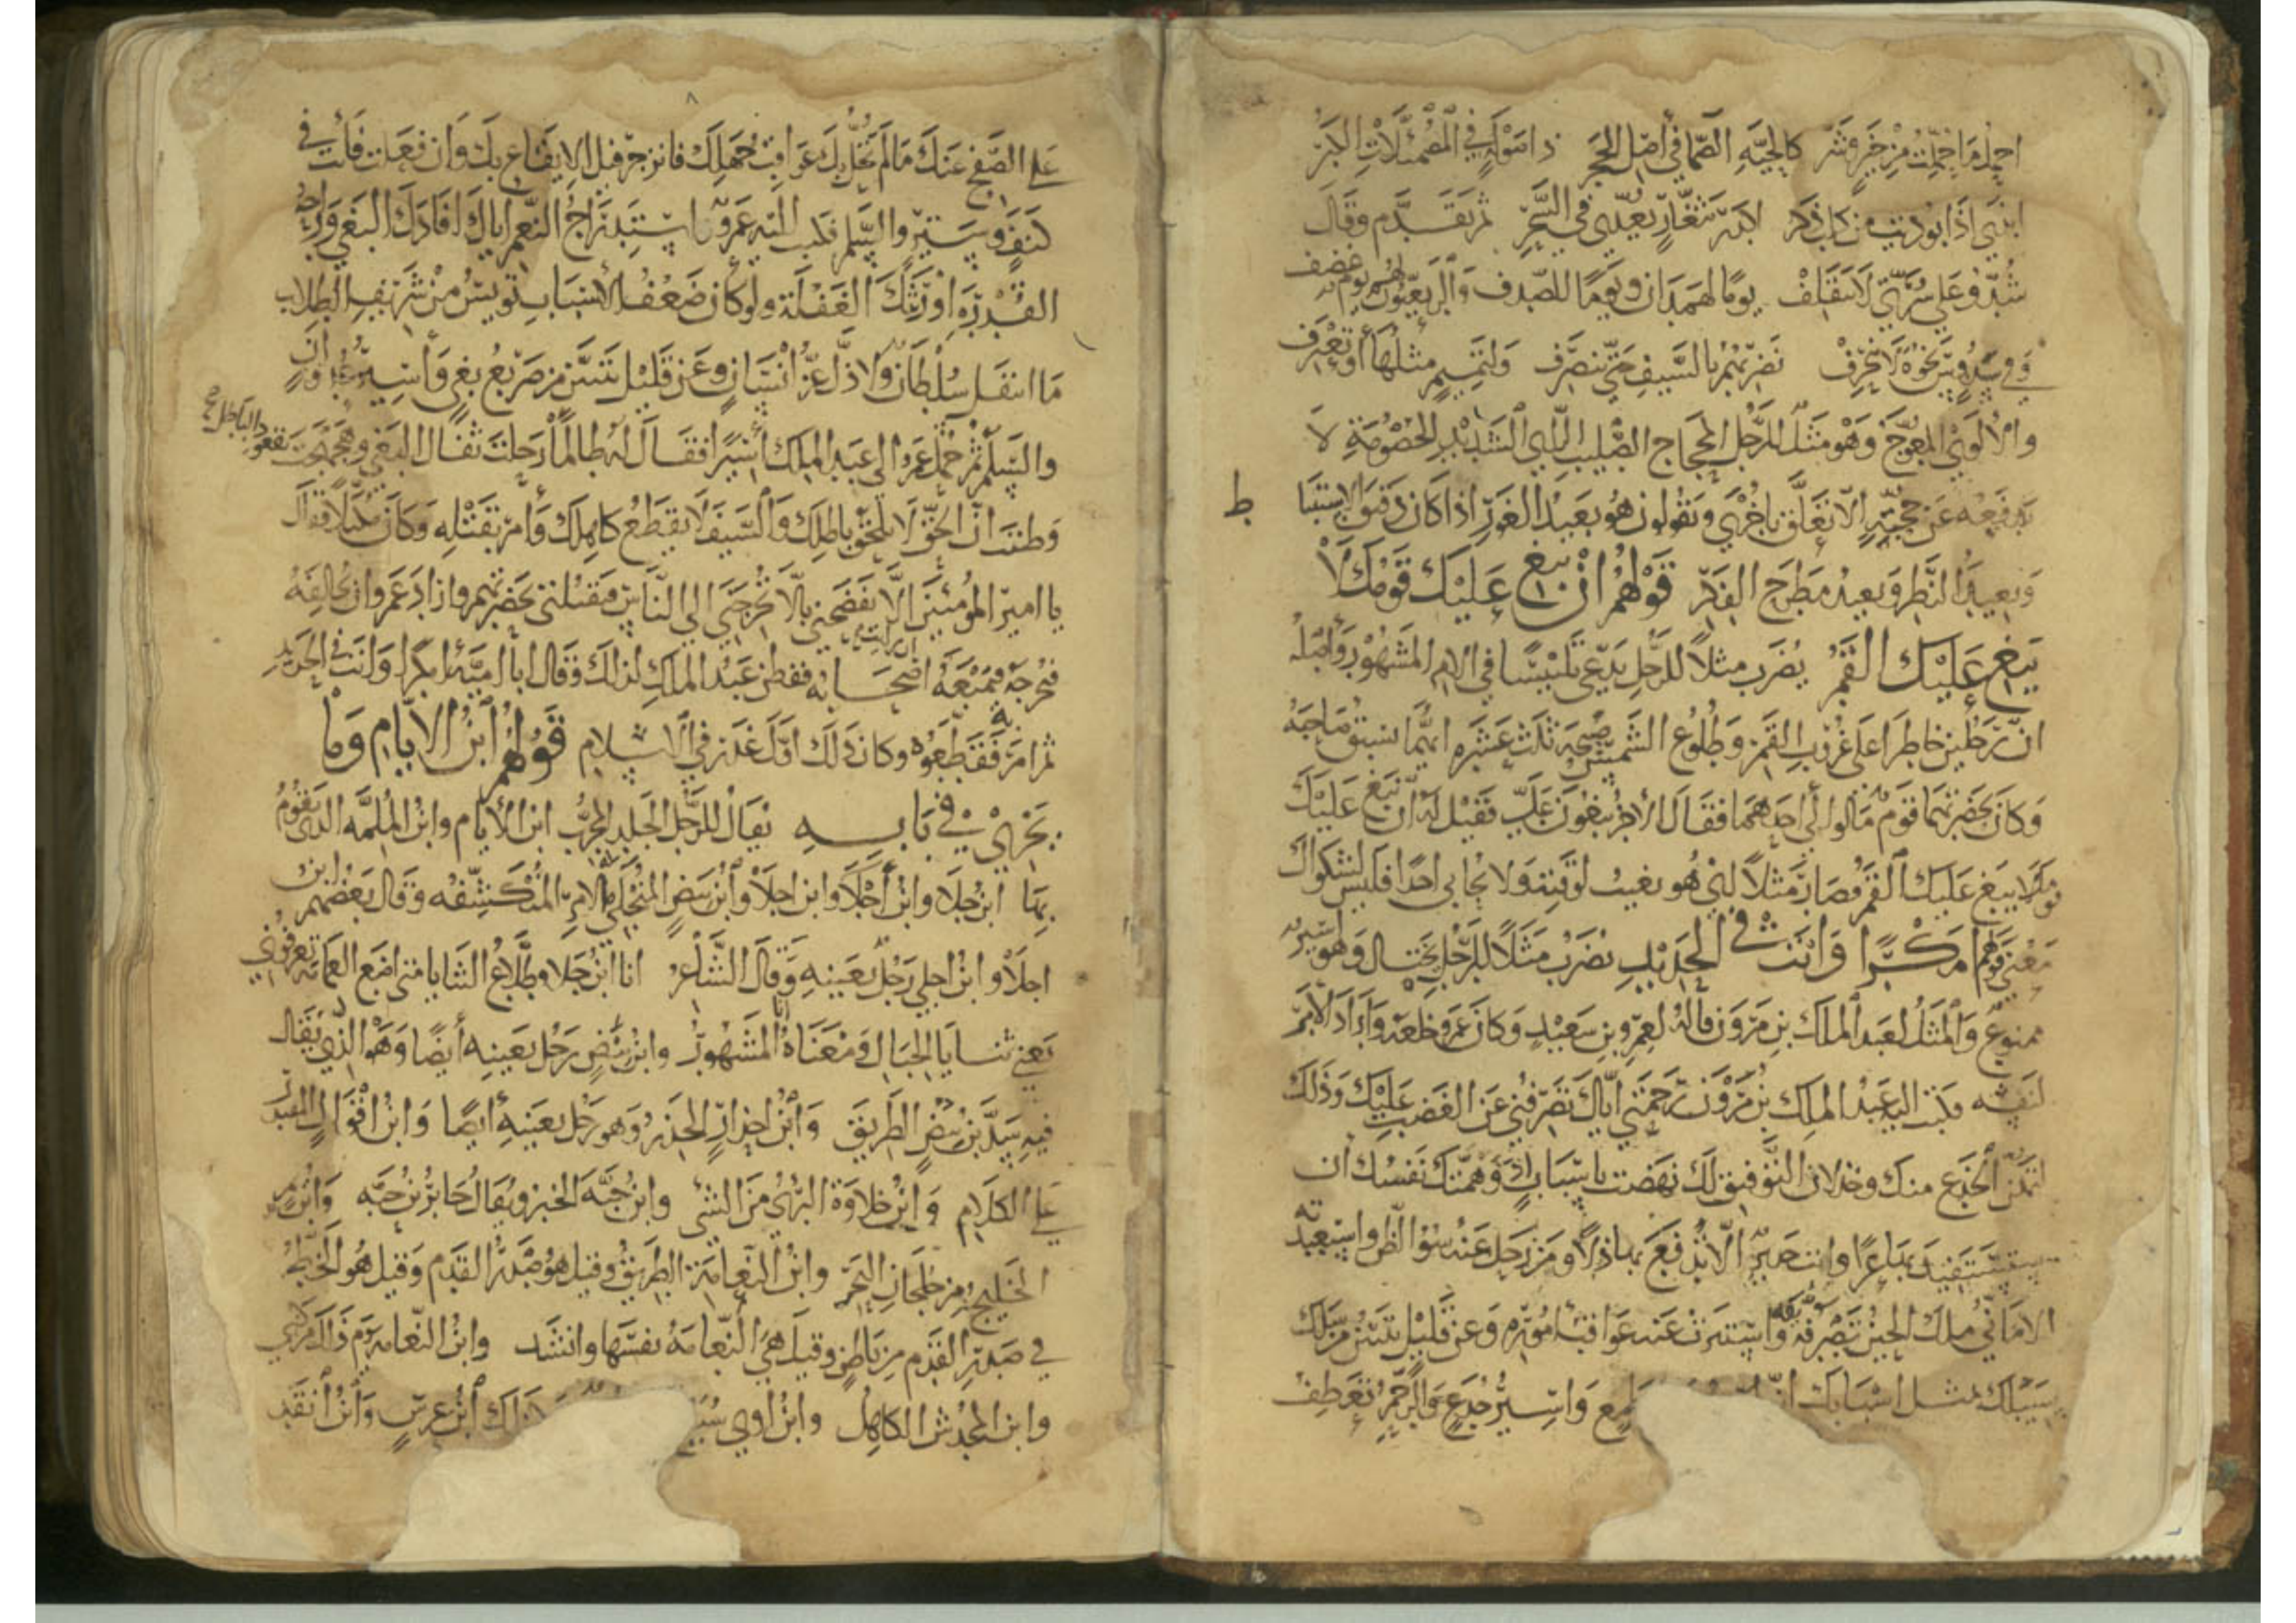 احمل ما حملت من خير وشر كالحية الصما في اصل الحجر ذا صولة في المصمئلات الكبر
ابنى اذا بوديت من كل ذكر ثم تقدم وقال
شدوا على سرتي لا تنقلف يوما لهمدان ويوما للصدف والربعيون لهم يوم عصف
وفي سدوس نخوة لا تنحرف نضربهم بالسيف حتى تنصرف ولتميم مثلها أو تعترف
والألوى المعوج وهو مثل للرجل المحجاج الصليب الراي الشديد الخصومة لا
يدفعه عن حجة الا تعلق باخرى ويقولون هو بعيد الغور اذا كان دقيق الاستنبا ط
وبعيد النظر وبعيد مطرح الفكر قولهم ان يبغ عليك قومك لا
يبغ عليك القمر يضرب مثلا للرجل يدعي تلبيسا في الامر المشهور واصله
ان رجلين خاطرا على غروب القمر وطلوع الشمس صبيحة ثلث عشره ايهما يسبق صاحبه
وكان بحضرتهما قوم مالوا الى احدهما فقال الاخر تبغون علي فقيل له ان يبغ عليك
قومك لا يبغ عليك القمر فصار مثلا اي هو يغيب لوقته ولا يحابي احدا فليس لشكواك
معنى قولهم امكرا وانت في الحديد يضرب مثلا للرجل يحتال وهو اسير
ممنوع والمثل لعبد الملك بن مرون قاله لعمرو بن سعيد وكان عمرو خلعه واراد الامر
لنفسه فكتب اليه عبد الملك بن مرون رحمتي اياك تصرفني عن الغضب عليك وذلك
لتمكن الخدع منك وخذلان التوفيق لك نهضت باسباب وهمتك نفسك ان
تستفيد بها عزا وانت جدير الا تدفع بها ذلا ومن رحل عنه سوء الظن واستعبدته
الاماني ملك الحين تصريفه واستترت عنه عواقب اموره وعن قليل يتبين من سلك
سبيلك بمثل اسبابك واسير خدع والرحم تعطف
على الصفح عنك ما لم تحلل بك عواقب جهلك فانزجر قبل الايقاع بك وان فعلت فأنت في
كنف وستر والسلم فكتب اليه عمرو استدراج النعم اياك افادك البغي وراحة
القدرة اورثتك الغفلة ولو كان ضعف الاسباب يويس من شريف الطلاب
ما انتقل سلطان ولا ذل عز انسان وعن قليل تتبين من صريع بغي وأسير غدر
والسلم ثم حمل عمرو الى عبد الملك أسيرا فقال له طالما رحلت ثفال البغي وهجهجت بقعود الباطل
وظننت أن الحق لا يلحق باطلك والسيف لا يقطع كاهلك وأمر بقتله وكان مكبلا فقال
يا امير المؤمنين الا تفضحني بالا تخرجني الى الناس فتقتلني بحضرتهم واراد عمرو ان يخالفه
فيخرجه فيمنعه اصحابه ففطن عبد الملك لذلك وقال ابا امية امكرا وانت في الحديد
ثم امر به فقطعوه وكان ذلك اول غدر في الاسلام قولهم ابن الايام وما
يجري في بابه يقال للرجل الجلد المجرب ابن الأيام وابن الملمه الذي يقوم
بها ابن جلا وابن أجلا وابن اجلا وابن بيض المنجلي الامر المنكشفه وقال بعضهم ابن
اجلا وابن اجلى رجل بعينه وقال الشاعر انا ابن جلا وطلاع الثنايا متى اضع العمامة تعرفوني
يعني ثنايا الجبال ومعناه أنا المشهور وابن بيض رجل بعينه أيضا وهو الذي يقال
فيه سد بن بيض الطريق وابن احذار الحذر وهو رجل بعينه أيضا وابن اقوال المقتدر
على الكلام وابن خلاوة البري من الشئ وابن حبه الخبز ويقال جابر بن حبه وابن
الخليج من خلجان البحر وابن النعامة الطريق وقيل هو صدر القدم وقيل هو الخط
في صدر القدم من باطن وقيل هي النعامة نفسها وانشد وابن النعامة يوم ذلك مركبي
وابن المخدش الكاهل وابن اوى كذلك ابن عرس وابن أنقد